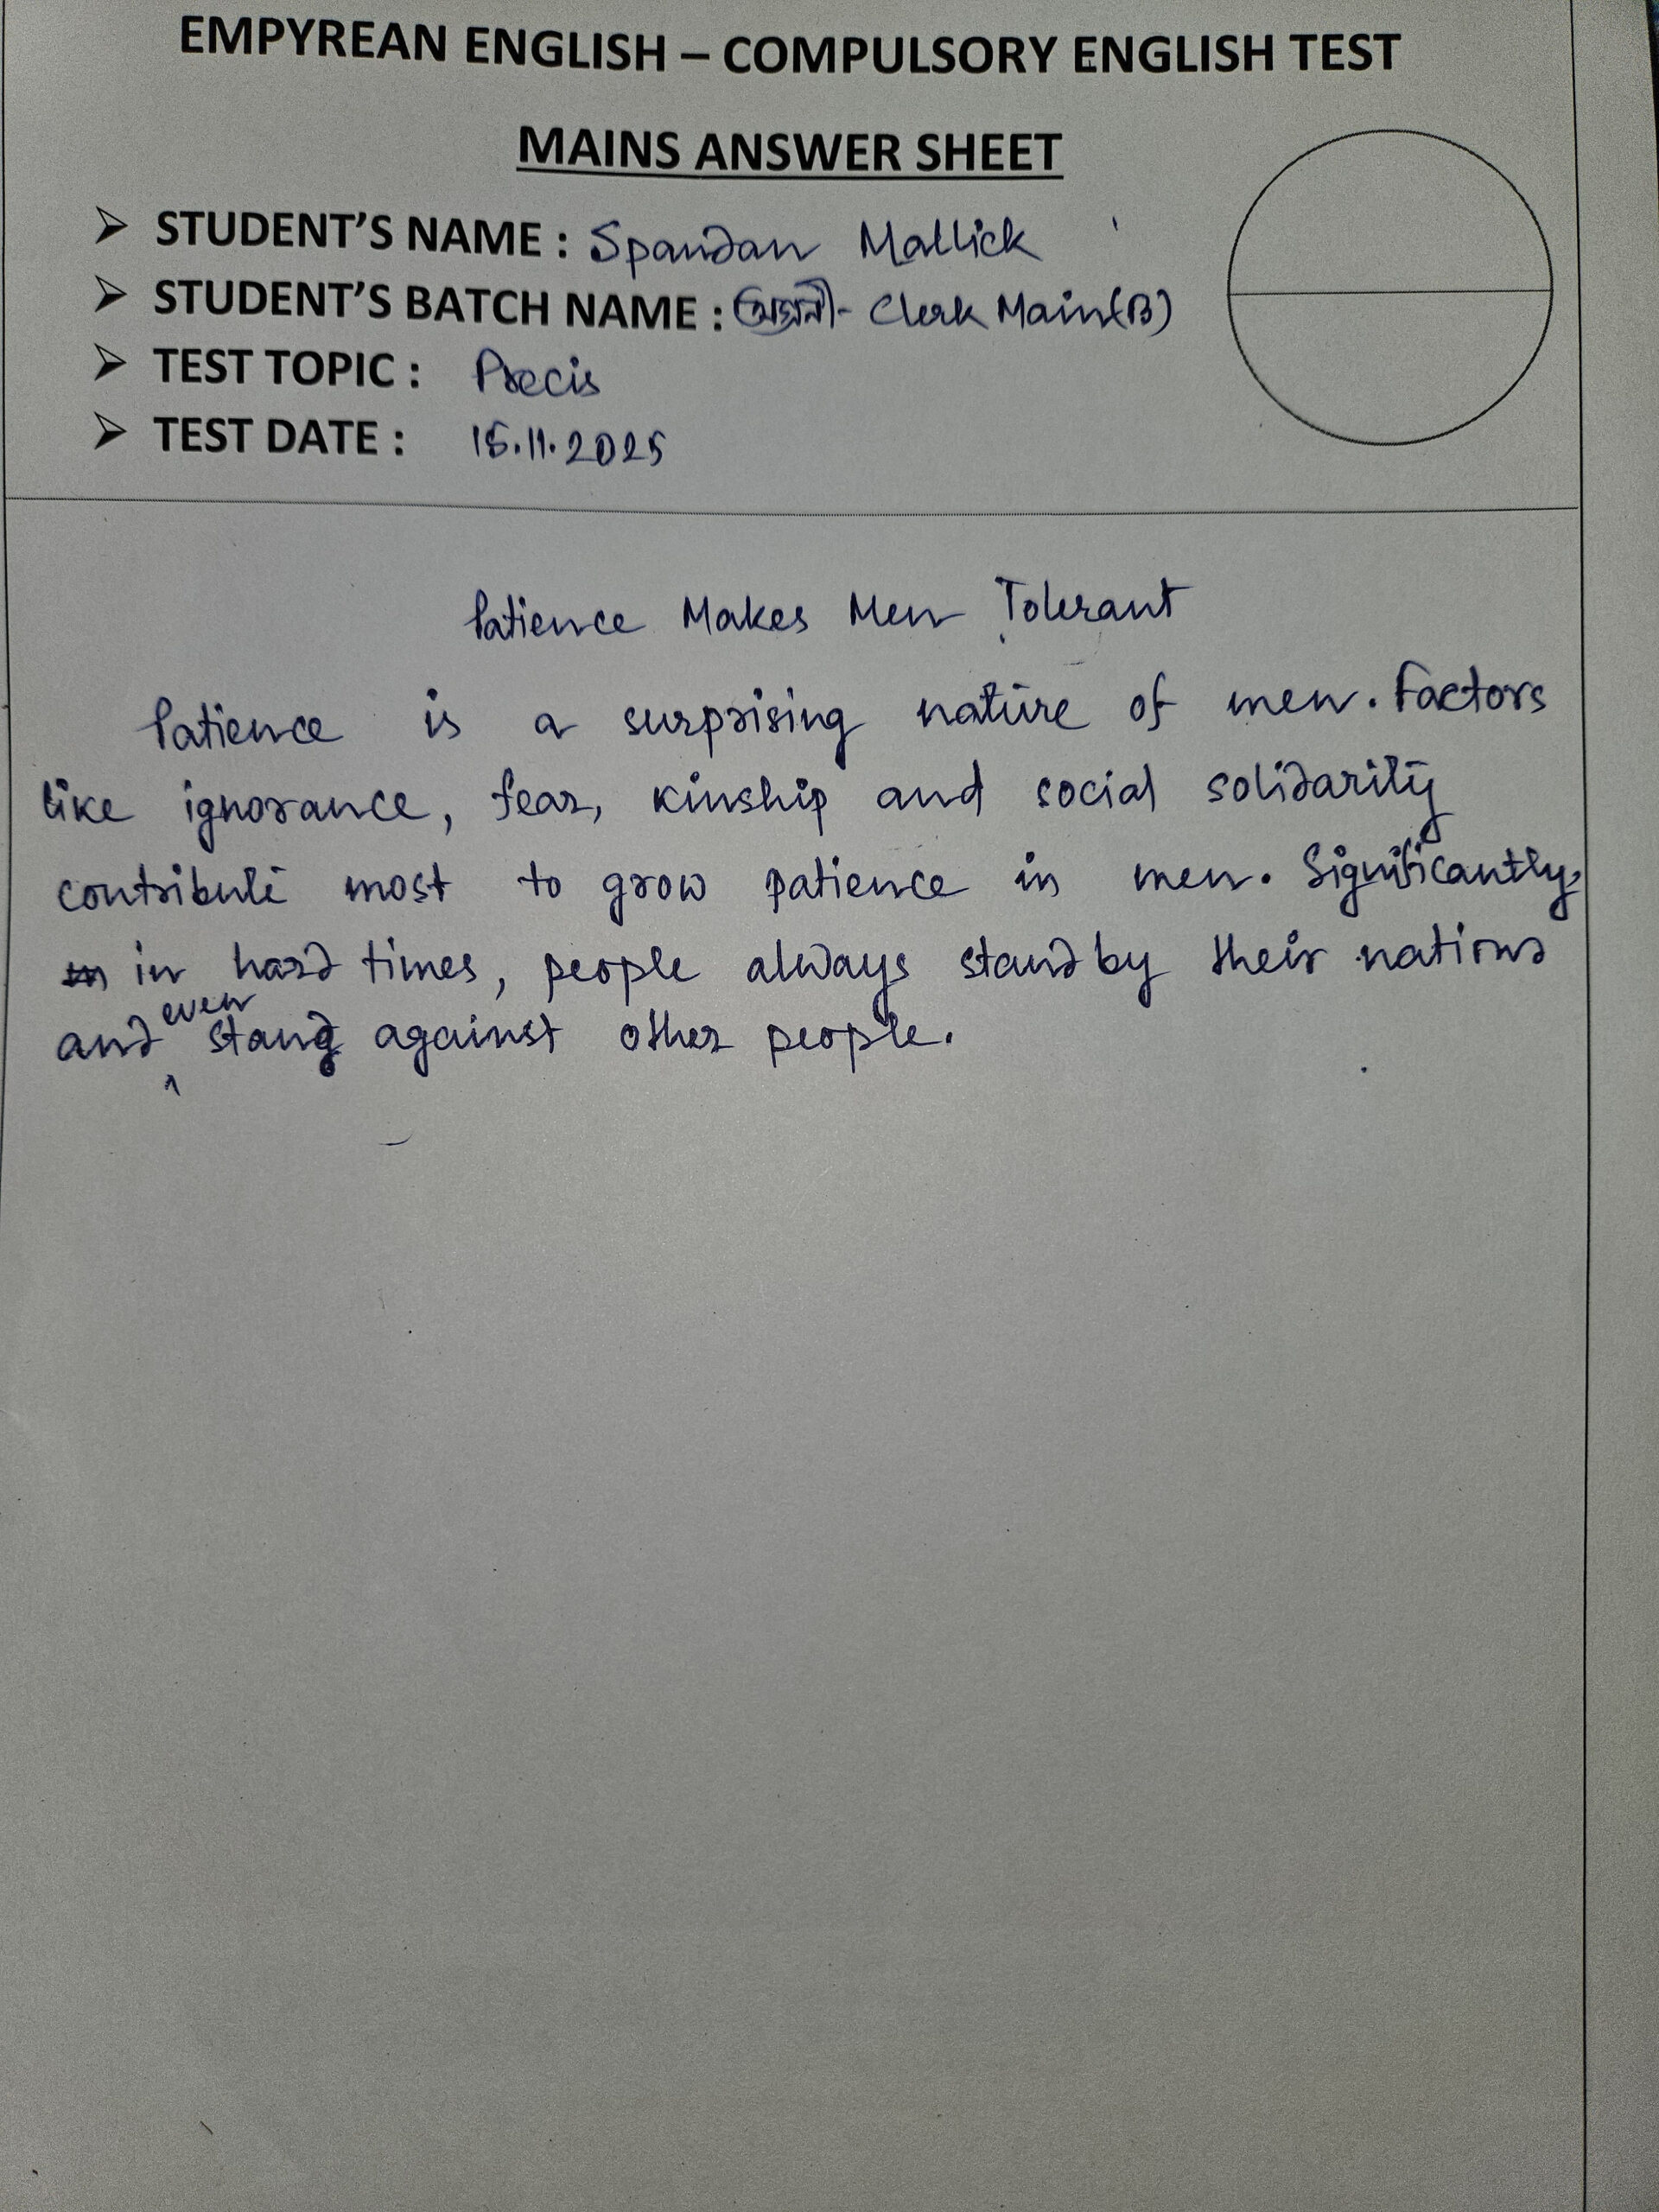 EMPYREAN ENGLISH – COMPULSORY ENGLISH TEST
MAINS ANSWER SHEET
➤ STUDENT'S NAME : Spandan Mallick
➤ STUDENT'S BATCH NAME : - Clerk Main(B)
➤ TEST TOPIC : Precis
➤ TEST DATE : 15.11.2025
Patience Makes Men Tolerant
Patience is a surprising nature of men. Factors
like ignorance, fear, kinship and social solidarity
contribute most to grow patience in men. Significantly,
in hard times, people always stand by their nations
and even stand against other people.